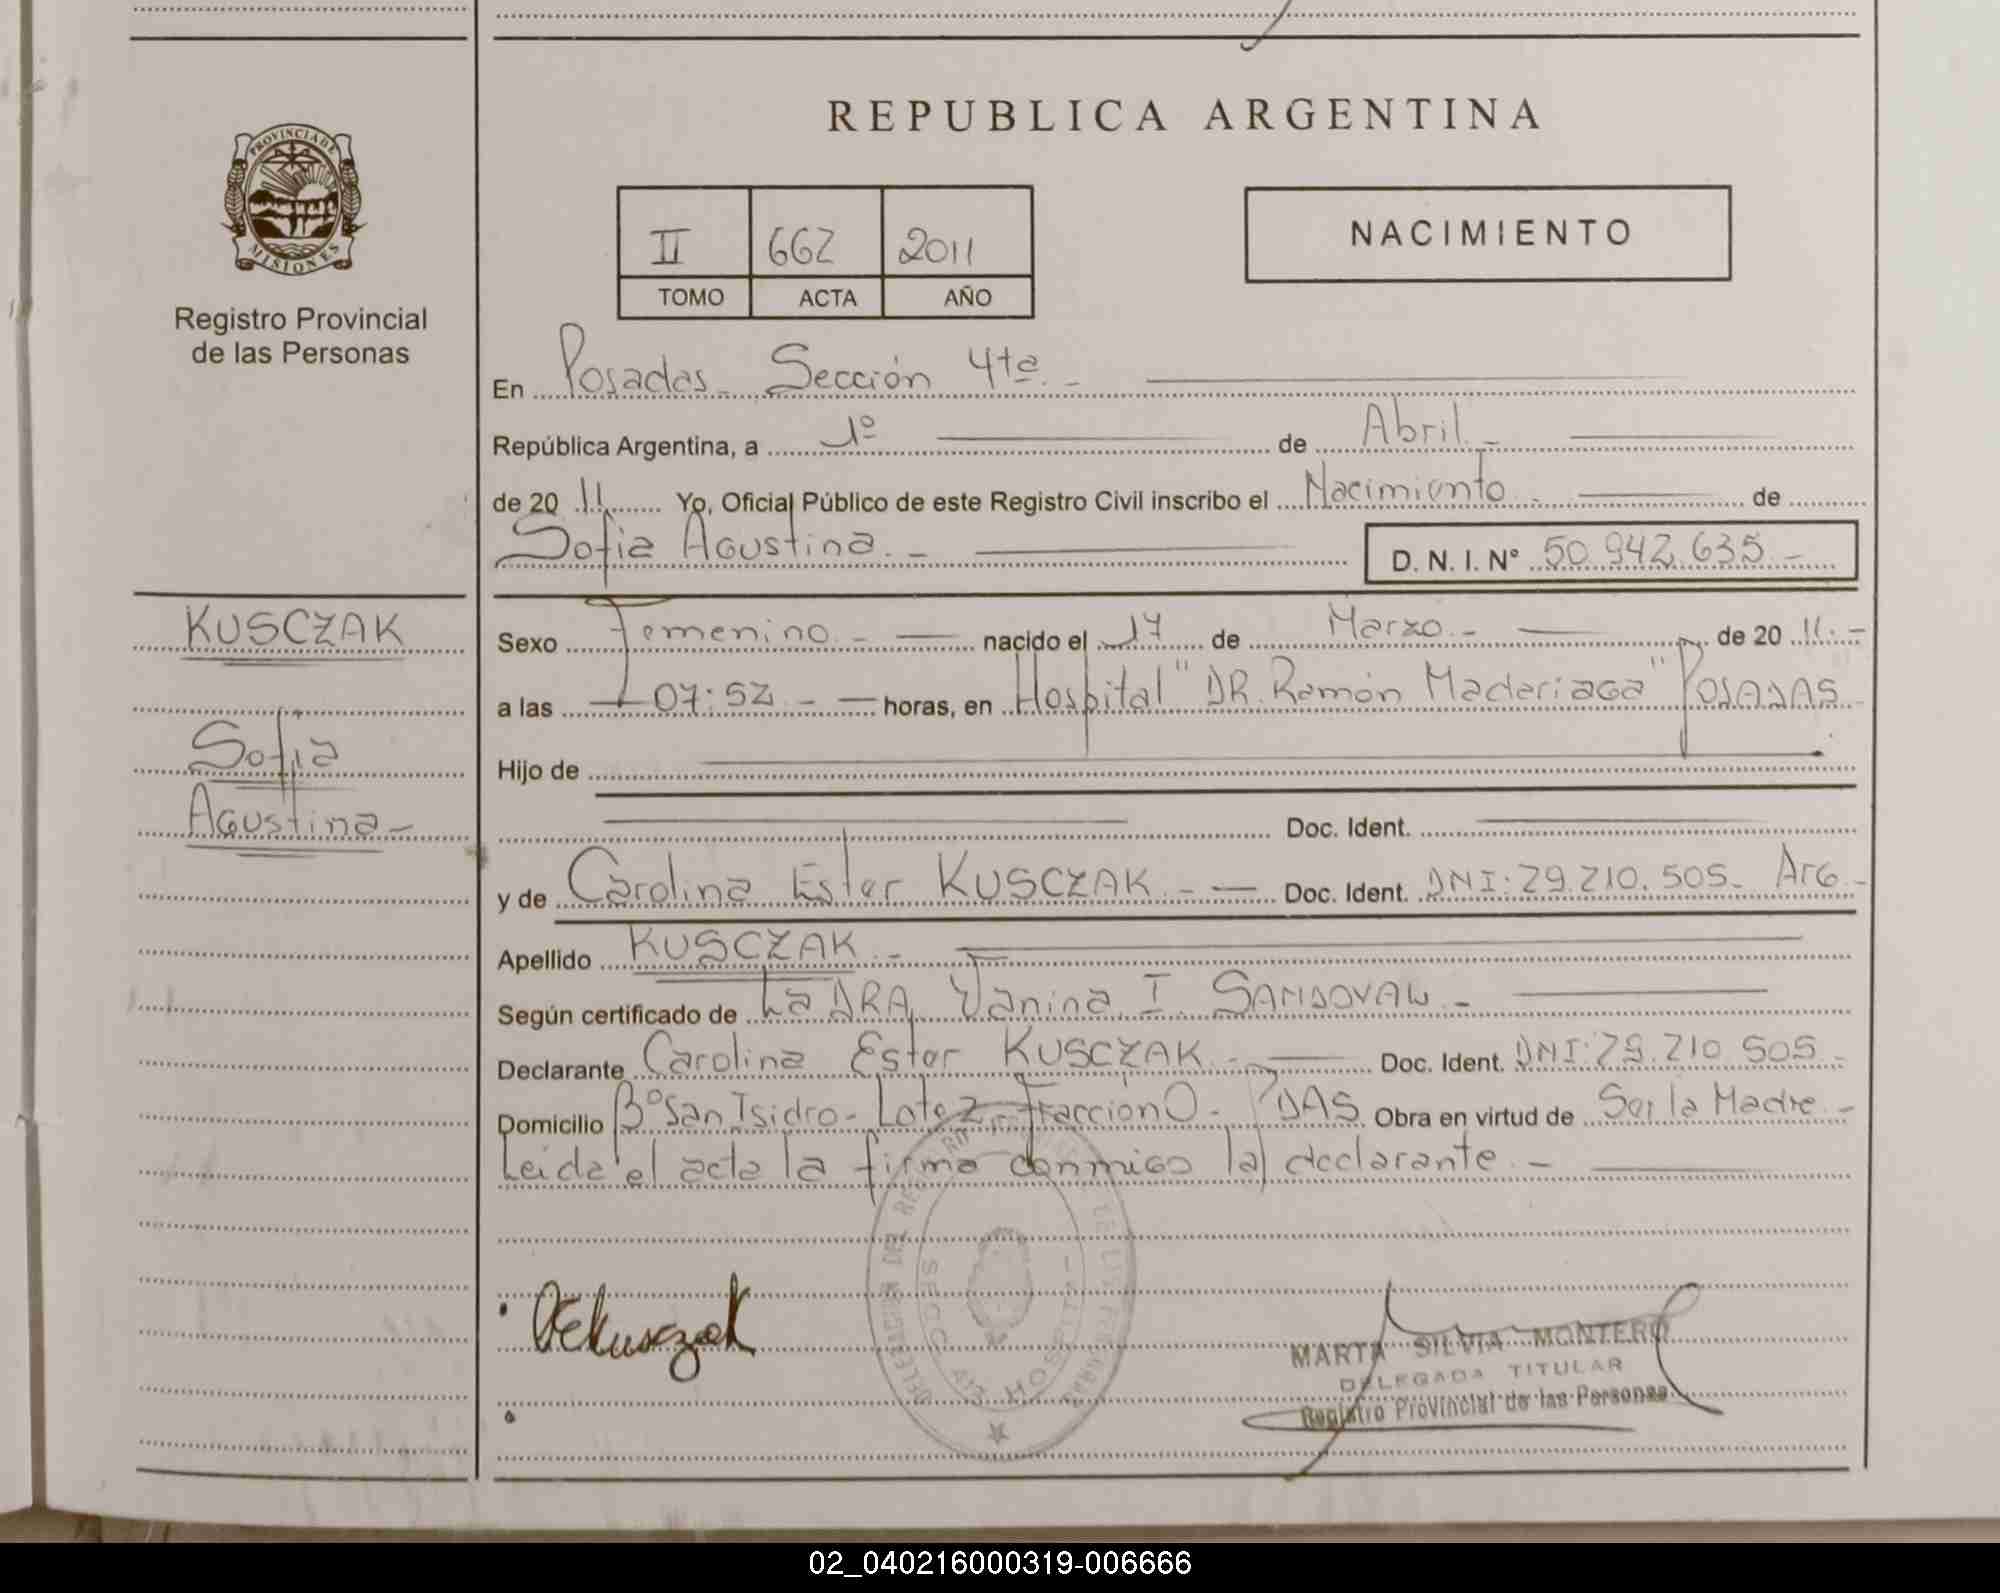 REPUBLICA ARGENTINA
PROVINCIA DE
MISIONES
Registro Provincial
de las Personas
II 662 2011
TOMO ACTA AÑO
NACIMIENTO
En Posadas - Sección 4ta. -
República Argentina, a 1º de Abril. -
de 20 11 Yo, Oficial Público de este Registro Civil inscribo el Nacimiento. - de
Sofia Agustina. - D. N. I. Nº 50.942.635. -
KUSCZAK
Sofia
Agustina -
Sexo Femenino. - nacido el 17 de Marzo. - de 20 11. -
a las 07:52. - horas, en Hospital "DR. Ramón Madariaga" POSADAS.
Hijo de
Doc. Ident.
y de Carolina Ester KUSCZAK. - Doc. Ident. DNI: 29.210.505. Arg. -
Apellido KUSCZAK. -
Según certificado de La DRA. Yanina I. SANDOVAL. -
Declarante Carolina Ester KUSCZAK. - Doc. Ident. DNI: 29.210.505. -
Domicilio Bº San Isidro - Lote 2 - Fracción O - PDAS. Obra en virtud de Ser la Madre. -
Leida el acta la firma conmigo la declarante. -
CEKusczak
MARTA SILVIA MONTERO
DELEGADA TITULAR
Registro Provincial de las Personas
02_040216000319-006666